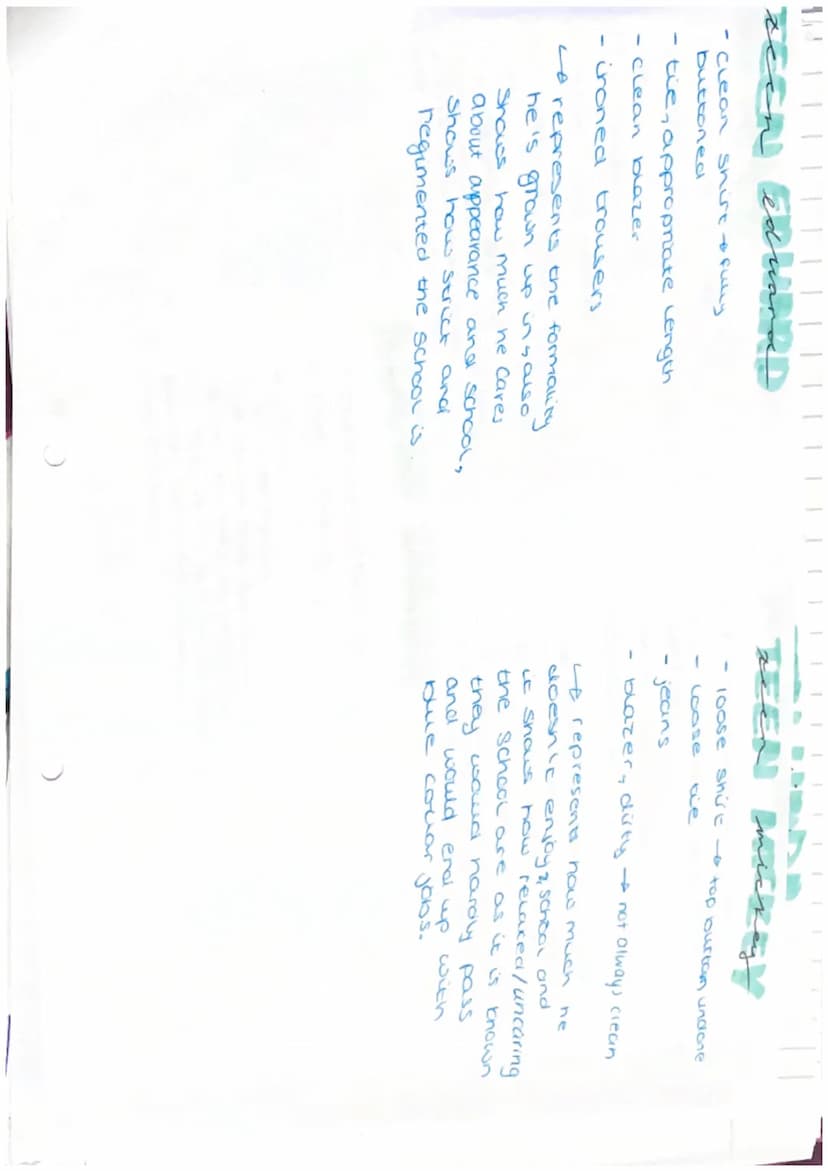 TEEN EDWARD
teen edward
- clean shirt → fully
buttoned
- tie, appropriate length
- clean blazer
- ironed trousers
↳ represents the formality
he's grown up in, also
shows how much he cares
about appearance and school,
shows how strict and
regimented the school is
TEEN MICKEY
teen mickey
- loose shirt → top button undone
- loose tie
- jeans
- blazer, dirty → not always clean
↳ represents how much he
doesn't enjoy school and
it shows how relaxed/uncaring
the school are as it is known
they would hardly pass
and would end up with
blue collar jobs.